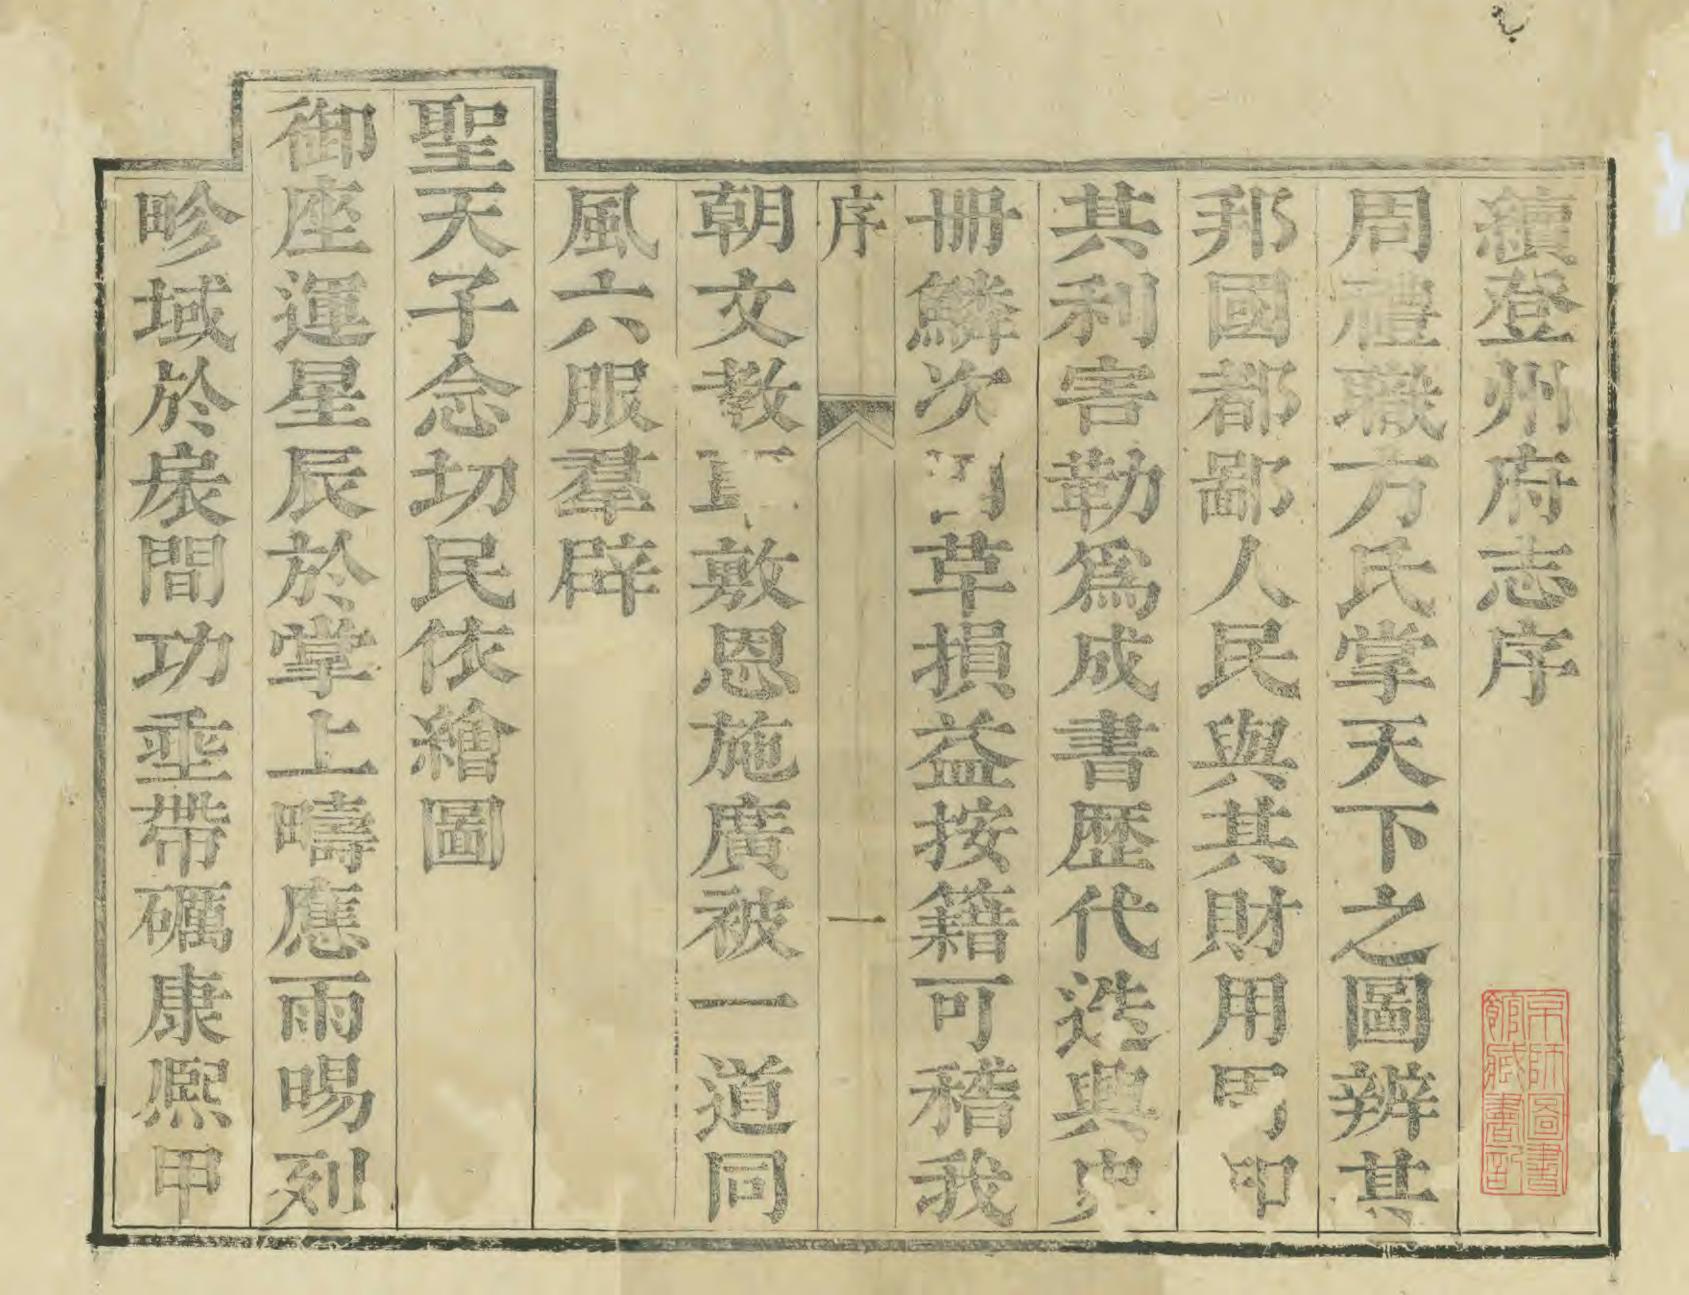 續登州府志序
周禮職方氏掌天下之圖辨其
邦國都鄙人民與其財用
其利害勒爲成書歴代迭興史
冊鱗次草損益按籍可稽我
序 一
朝文教敷恩施廣被一道同
風六服羣辟
聖天子念切民依繪圖
御座運星辰於掌上疇應雨暘列
畛域於扆間功垂帶礪康熙甲
京師圖書
館藏書記